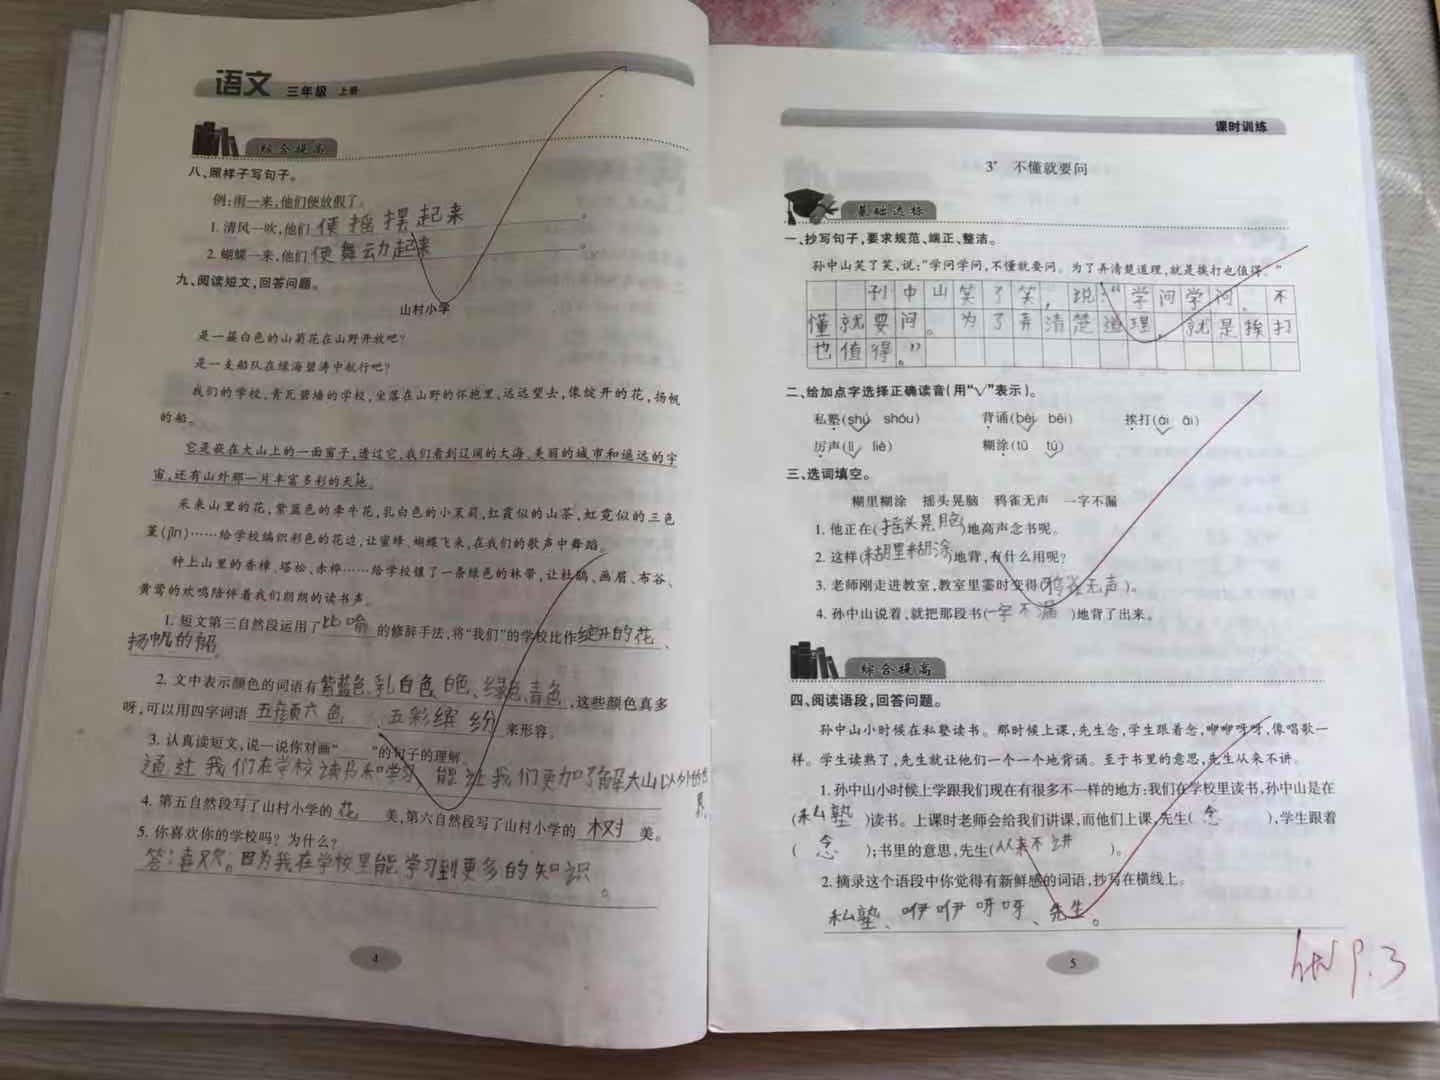 语文 三年级 上册
综合提高
八、照样子写句子。
例:雨一来,他们便放假了。
1. 清风一吹,他们便摇摆起来。
2. 蝴蝶一来,他们便舞动起来。
九、阅读短文,回答问题。
山村小学
是一簇白色的山菊花在山野开放吧?
是一支船队在绿海碧涛中航行吧?
我们的学校,青瓦碧墙的学校,坐落在山野的怀抱里,远远望去,像绽开的花,扬帆
的船。
它是嵌在大山上的一面窗子,透过它,我们看到辽阔的大海、美丽的城市和遥远的宇
宙,还有山外那一片丰富多彩的天地。
采来山里的花,紫蓝色的牵牛花,乳白色的小茉莉,红霞似的山茶,虹霓似的三色
堇(jǐn)……给学校编织彩色的花边,让蜜蜂、蝴蝶飞来,在我们的歌声中舞蹈。
种上山里的香樟、塔松、赤桦……给学校镶了一条绿色的林带,让杜鹃、画眉、布谷、
黄莺的欢鸣陪伴着我们朗朗的读书声。
1. 短文第三自然段运用了比喻的修辞手法,将“我们”的学校比作绽开的花、
扬帆的船。
2. 文中表示颜色的词语有紫蓝色、乳白色、白色、绿色、青色,这些颜色真多
呀,可以用四字词语五颜六色、五彩缤纷来形容。
3. 认真读短文,说一说你对画“____”的句子的理解。
通过我们在学校读书和学习 能让我们更加了解大山以外的世
界。
4. 第五自然段写了山村小学的花美,第六自然段写了山村小学的树美。
5. 你喜欢你的学校吗?为什么?
答:喜欢。因为我在学校里能学习到更多的知识。
4
课时训练
3* 不懂就要问
基础达标
一、抄写句子,要求规范、端正、整洁。
孙中山笑了笑,说:“学问学问,不懂就要问。为了弄清楚道理,就是挨打也值得。”
孙中山笑了笑,说:“学问学问。不
懂就要问。为了弄清楚道理,就是挨打
也值得。”
二、给加点字选择正确读音(用“√”表示)。
私塾(shú shóu) 背诵(bèi bēi) 挨打(ái āi)
厉声(lì liè) 糊涂(tū tú)
三、选词填空。
糊里糊涂 摇头晃脑 鸦雀无声 一字不漏
1. 他正在(摇头晃脑)地高声念书呢。
2. 这样(糊里糊涂)地背,有什么用呢?
3. 老师刚走进教室,教室里霎时变得(鸦雀无声)。
4. 孙中山说着,就把那段书(一字不漏)地背了出来。
综合提高
四、阅读语段,回答问题。
孙中山小时候在私塾读书。那时候上课,先生念,学生跟着念,咿咿呀呀,像唱歌一
样。学生读熟了,先生就让他们一个一个地背诵。至于书里的意思,先生从来不讲。
1. 孙中山小时候上学跟我们现在有很多不一样的地方:我们在学校里读书,孙中山是在
(私塾)读书。上课时老师会给我们讲课,而他们上课,先生(念),学生跟着
(念);书里的意思,先生(从来不讲)。
2. 摘录这个语段中你觉得有新鲜感的词语,抄写在横线上。
私塾、咿咿呀呀、先生。
5
9.3